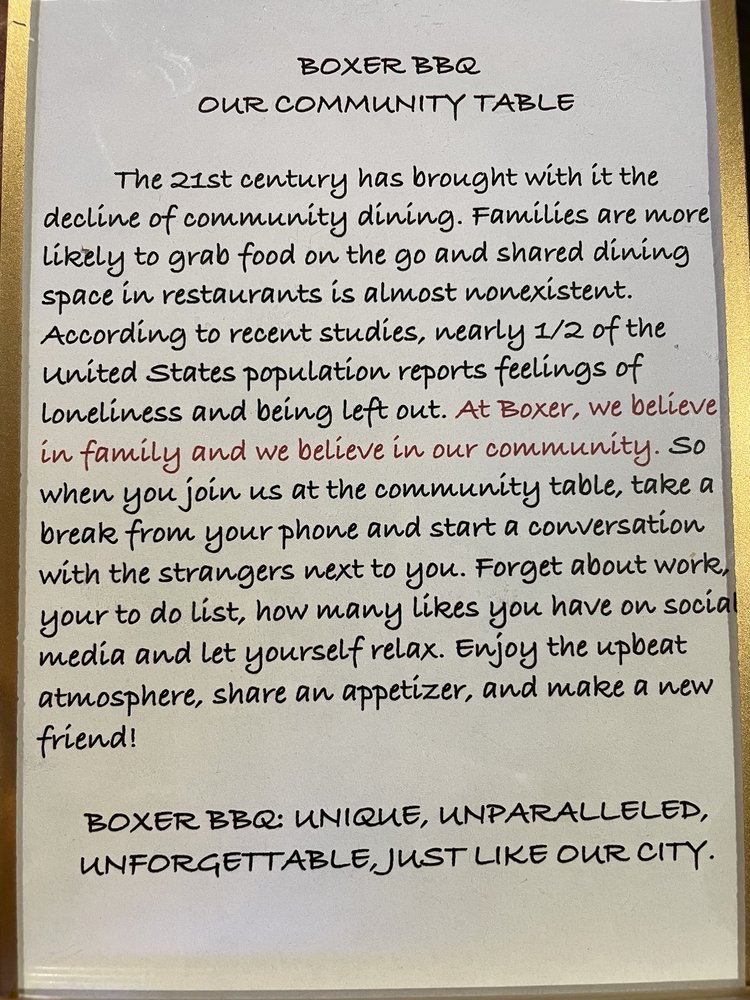 BOXER BBQ
OUR COMMUNITY TABLE
The 21st century has brought with it the
decline of community dining. Families are more
likely to grab food on the go and shared dining
space in restaurants is almost nonexistent.
According to recent studies, nearly 1/2 of the
United States population reports feelings of
loneliness and being left out. At Boxer, we believe
in family and we believe in our community. So
when you join us at the community table, take a
break from your phone and start a conversation
with the strangers next to you. Forget about work,
your to do list, how many likes you have on social
media and let yourself relax. Enjoy the upbeat
atmosphere, share an appetizer, and make a new
friend!
BOXER BBQ: UNIQUE, UNPARALLELED,
UNFORGETTABLE, JUST LIKE OUR CITY.